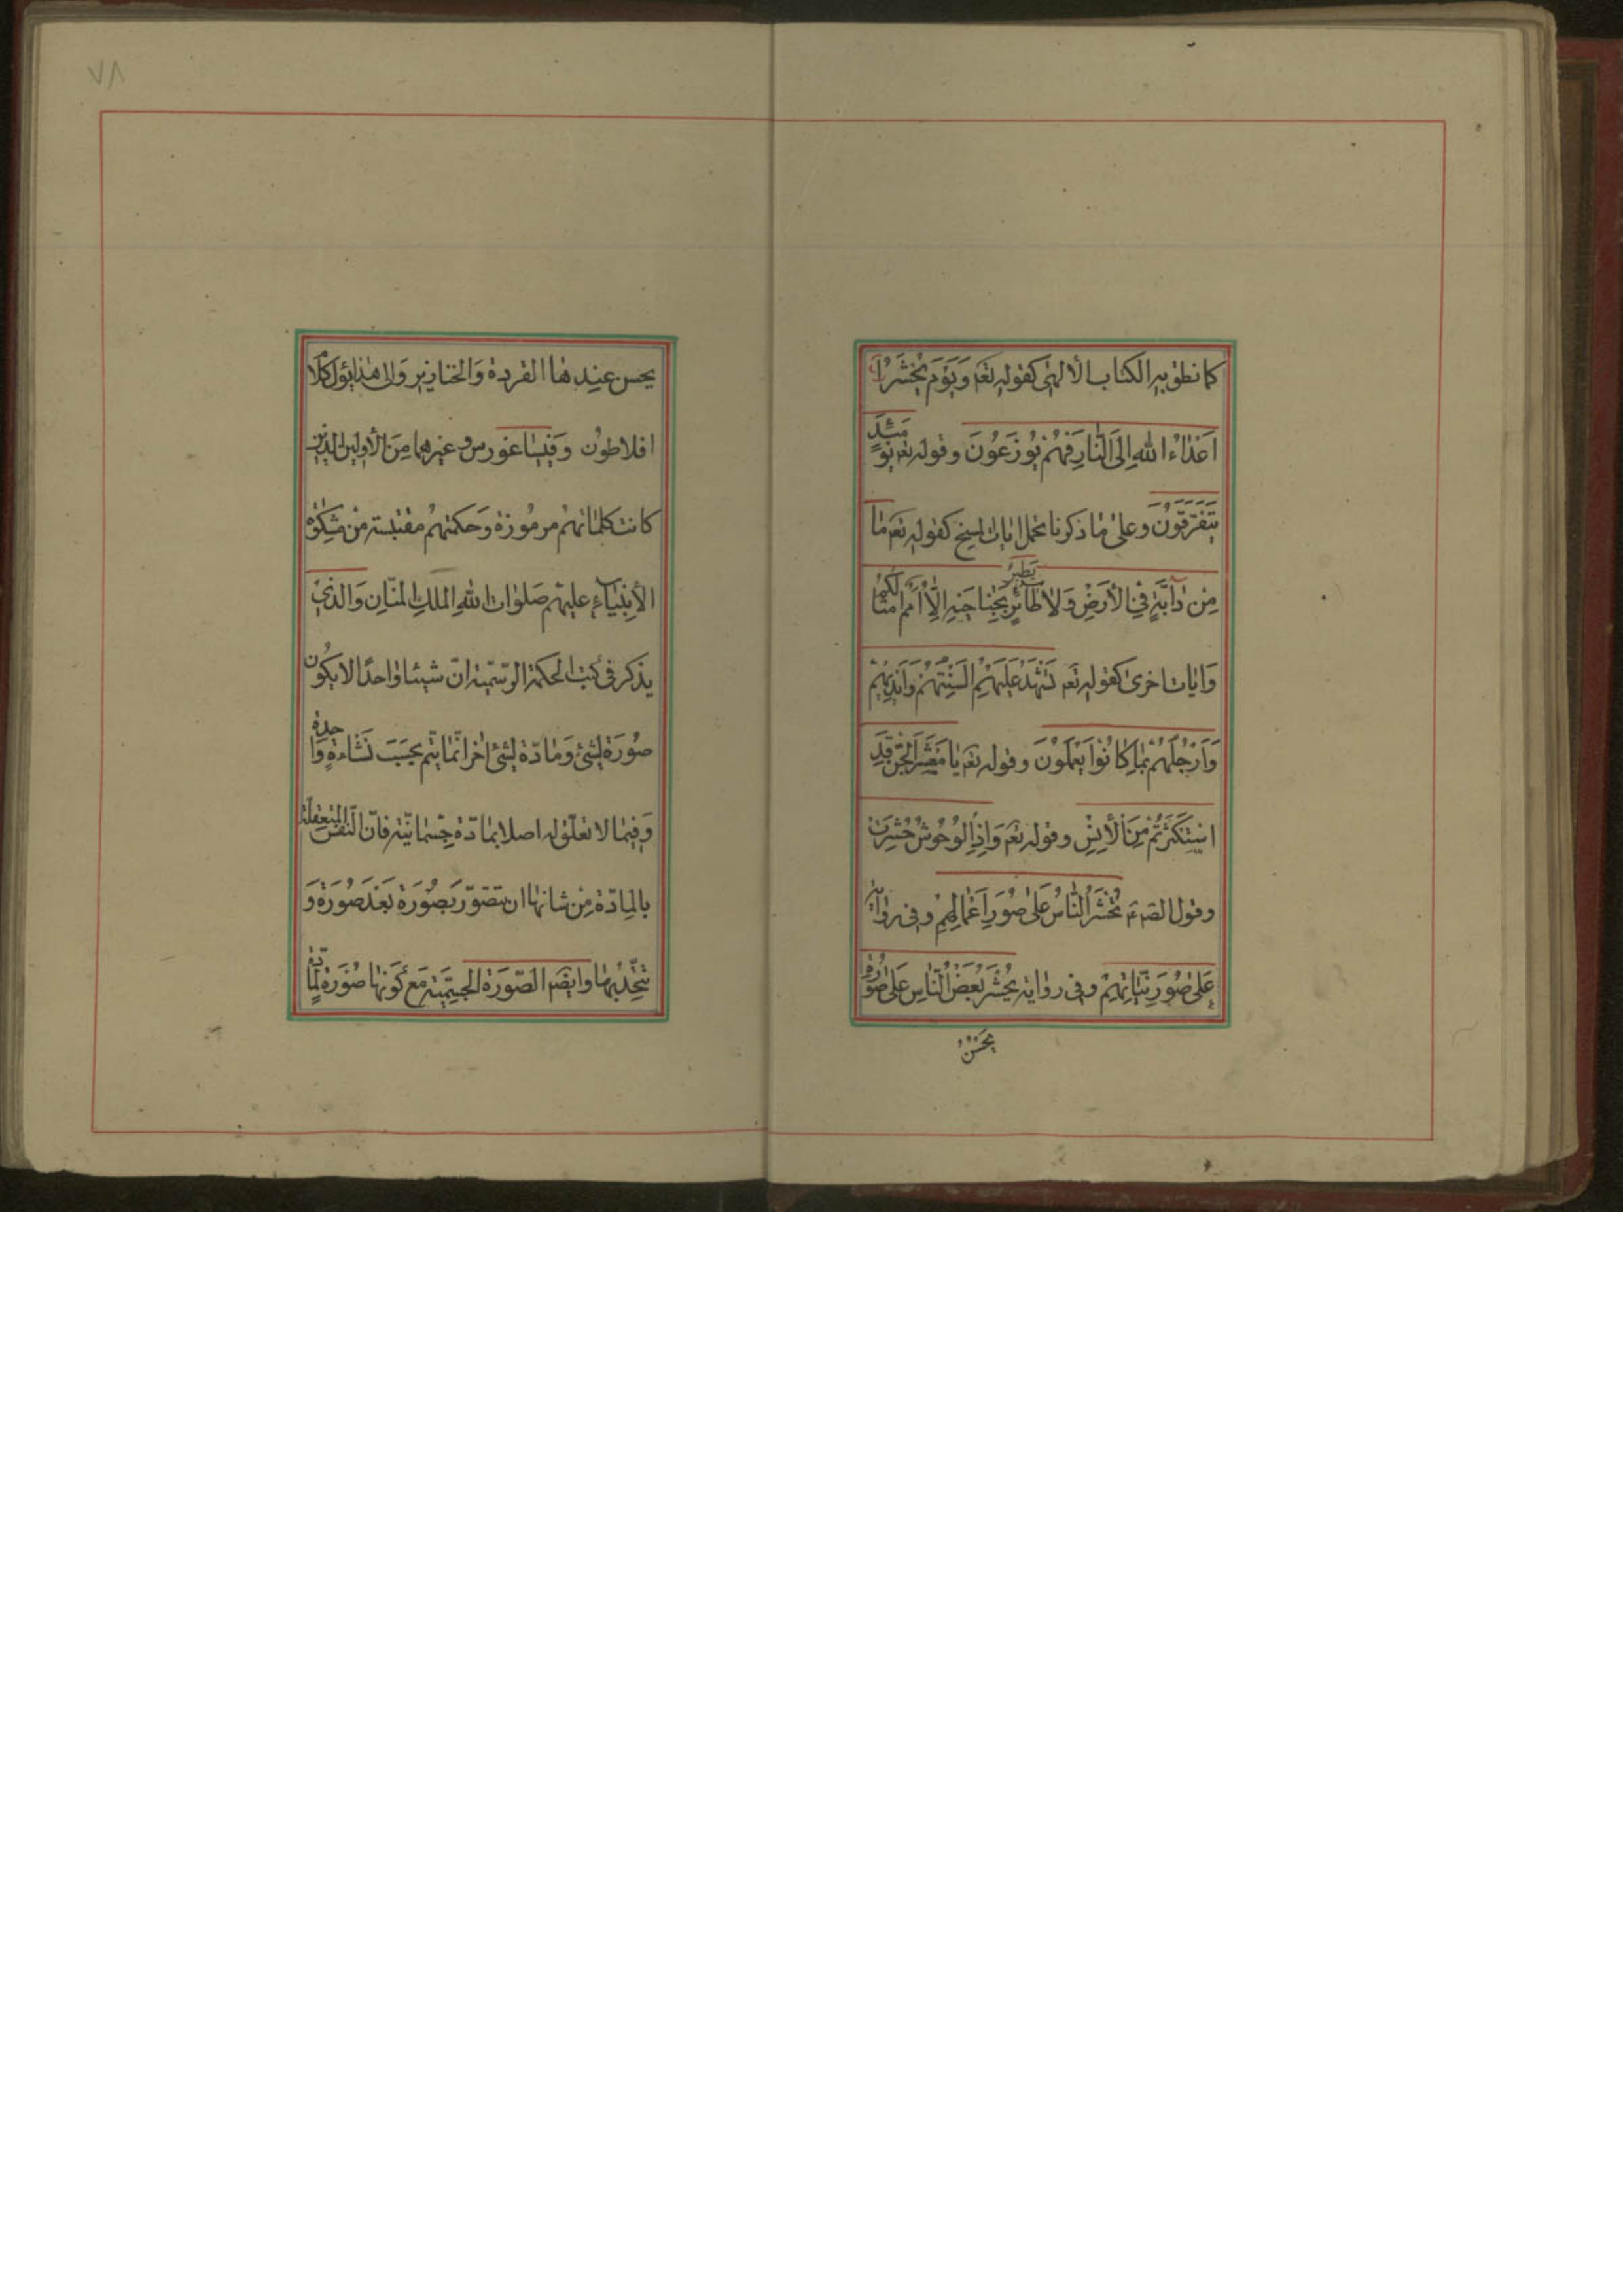 كما نطق به الكتاب الألهى كقوله تعه وَيَوْمَ يُحْشَرُ
اَعْداءُ اللهِ اِلَى النّارِ فَهُمْ يُوزَعُونَ وقوله تعه يَوْمَئِذٍ
يَتَفَرَّقُونَ وعلى ما ذكرنا يحمل ايات النسخ كقوله تعه مٰا
مِنْ دٰابَّةٍ فِى الْأَرْضِ وَلاٰ طٰائِرٍ يَطيرُ بِجَنٰاحَيْهِ اِلّٰا اُمَمٌ اَمْثٰالُكُمْ
وَايات اخرى كقوله تعه تَشْهَدُ عَلَيْهِمْ اَلْسِنَتُهُمْ وَاَيْديهِمْ
وَاَرْجُلُهُمْ بِمٰا كٰانُوْا يَعْمَلُوْنَ وقوله تعه يٰا مَعْشَرَ الْجِنِّ قَدِ
اسْتَكْثَرْتُمْ مِنَ الْأِنْسِ وقوله تعه وَاِذَا الْوُحُوشُ حُشِرَتْ
وقول الصه عه يُحْشَرُ النّٰاسُ عَلىٰ صُوَرِ اَعْمٰالِهِمْ وفى رواية
عَلىٰ صُوَرِ نِيّٰاتِهِمْ وفى رواية يُحْشَرُ بَعْضُ النّٰاسِ عَلىٰ صُورَةٍ
يَحْسُنُ
٧٨
يحسن عندها القردة وَالخنازير وَالى هٰذا يؤل كلام
افلاطون وَفيثاغورس وغيرهما مِنَ الأولين الذين
كانت كلماتهم مرموزة وَحكمتهم مقتبسة من مشكوة
الأنبياء عليهم صَلوات الله الملك المنّان وَالذى
يذكر فى كتب الحكمة الرسّميّة انّ شيئا واحدًا لا يكون
صُورَة لشئ وَمادّة لشئ اخر انّما يتم بحسَب نَشْاءةٍ وٰاحدة
وَفيما لا تعلّق له اصلا بمادّة جسمانيّة فانّ النّفس المتعلقة
بالمادّة مِن شانها ان تتصوّر بصُورَة بَعْدَ صُورَة وَ
تتحّد بها وايضه الصّورَة الجسميّة مَع كَونها صُورَة لمادّة